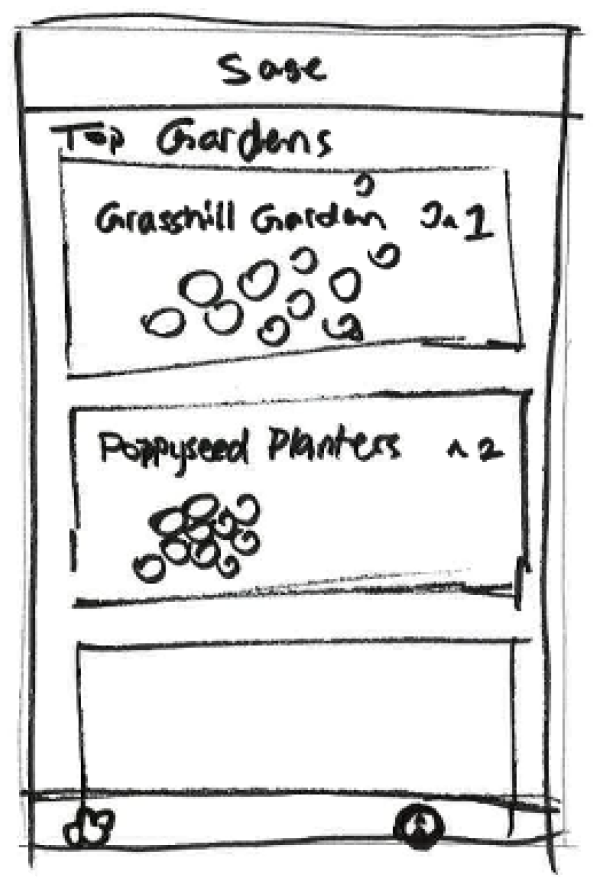 Sage
Top Gardens
Grasshill Garden ^ 1
Poppyseed Planters ^ 2